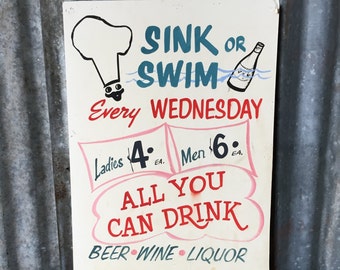 SINK OR
SWIM
Every WEDNESDAY
Ladies 4. EA. Men 6. EA.
ALL YOU
CAN DRINK
BEER • WINE • LIQUOR